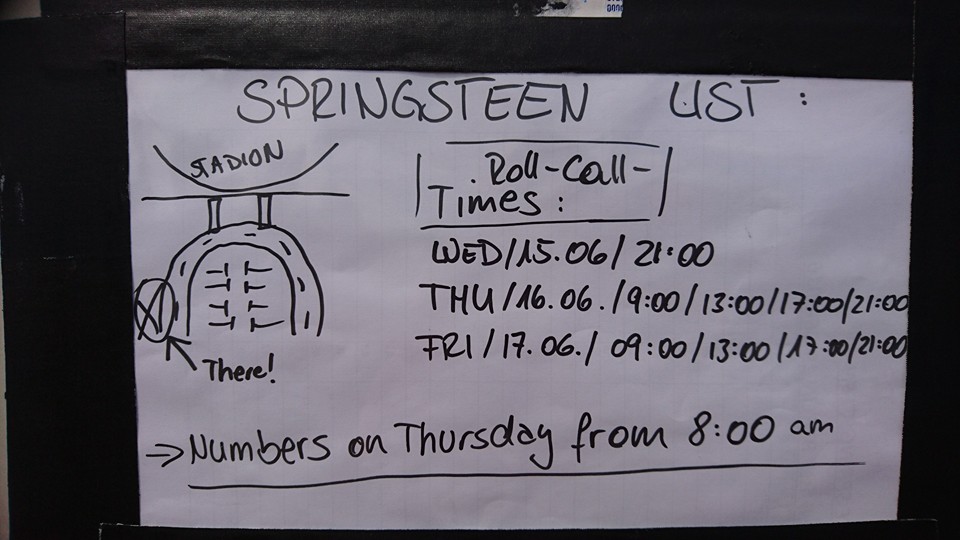 SPRINGSTEEN LIST :
STADION
. Roll-Call-
Times :
WED/15.06/ 21:00
THU/16.06./9:00/13:00/17:00/21:00
FRI/17.06./ 09:00/13:00/17:00/21:00
There!
→ Numbers on Thursday from 8:00 am